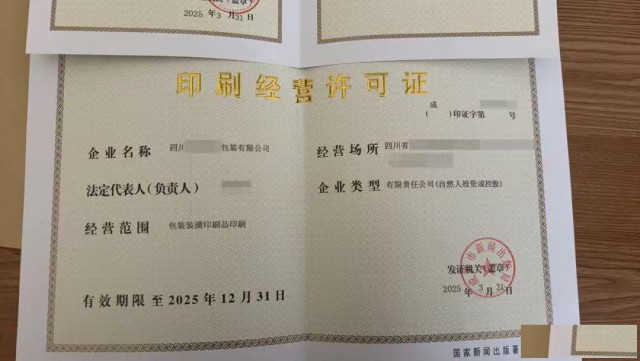 2025 年 3 月 31 日
印刷经营许可证
成
( )印证字第 号
企业名称 四川 包装有限公司
经营场所 四川省
法定代表人(负责人)
企业类型 有限责任公司(自然人投资或控股)
经营范围 包装装潢印刷品印刷
发证机关(盖章)
2025 年 3 月 31 日
有效期限至 2025 年 12 月 31 日
国家新闻出版署